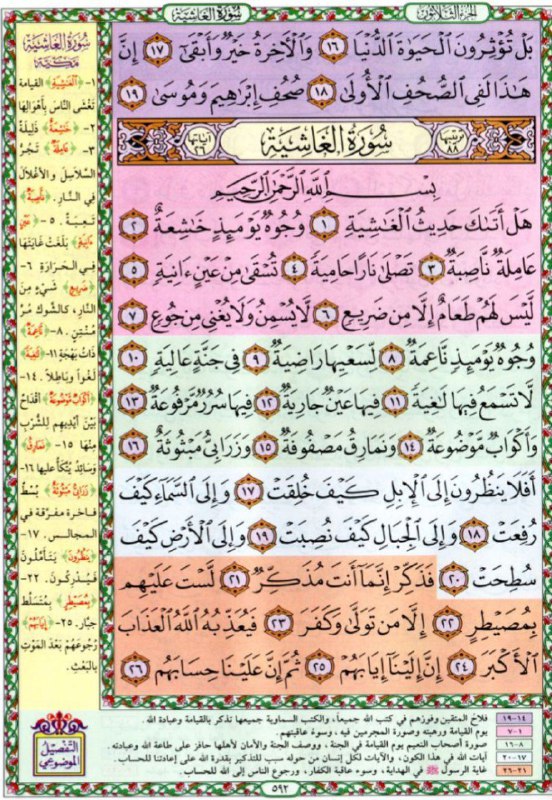 سُورَةُ الغَاشِيَةِ
الجزء الثلاثون
بَلْ تُؤْثِرُونَ الْحَيَوٰةَ الدُّنْيَا ١٦ وَالْآخِرَةُ خَيْرٌ وَأَبْقَىٰٓ ١٧ إِنَّ
هَٰذَا لَفِى الصُّحُفِ الْأُولَىٰ ١٨ صُحُفِ إِبْرَٰهِيمَ وَمُوسَىٰ ١٩
ترتيبها ٨٨ سُورَةُ الغَاشِيَةِ آياتها ٢٦
بِسْمِ اللَّهِ الرَّحْمَٰنِ الرَّحِيمِ
هَلْ أَتَىٰكَ حَدِيثُ الْغَٰشِيَةِ ١ وُجُوهٌ يَوْمَئِذٍ خَٰشِعَةٌ ٢
عَامِلَةٌ نَّاصِبَةٌ ٣ تَصْلَىٰ نَارًا حَامِيَةً ٤ تُسْقَىٰ مِنْ عَيْنٍ ءَانِيَةٍ ٥
لَّيْسَ لَهُمْ طَعَامٌ إِلَّا مِن ضَرِيعٍ ٦ لَّا يُسْمِنُ وَلَا يُغْنِى مِن جُوعٍ ٧
وُجُوهٌ يَوْمَئِذٍ نَّاعِمَةٌ ٨ لِّسَعْيِهَا رَاضِيَةٌ ٩ فِى جَنَّةٍ عَالِيَةٍ ١٠
لَّا تَسْمَعُ فِيهَا لَٰغِيَةً ١١ فِيهَا عَيْنٌ جَارِيَةٌ ١٢ فِيهَا سُرُرٌ مَّرْفُوعَةٌ ١٣
وَأَكْوَابٌ مَّوْضُوعَةٌ ١٤ وَنَمَارِقُ مَصْفُوفَةٌ ١٥ وَزَرَابِىُّ مَبْثُوثَةٌ ١٦
أَفَلَا يَنظُرُونَ إِلَى الْإِبِلِ كَيْفَ خُلِقَتْ ١٧ وَإِلَى السَّمَآءِ كَيْفَ
رُفِعَتْ ١٨ وَإِلَى الْجِبَالِ كَيْفَ نُصِبَتْ ١٩ وَإِلَى الْأَرْضِ كَيْفَ
سُطِحَتْ ٢٠ فَذَكِّرْ إِنَّمَآ أَنتَ مُذَكِّرٌ ٢١ لَّسْتَ عَلَيْهِم
بِمُصَيْطِرٍ ٢٢ إِلَّا مَن تَوَلَّىٰ وَكَفَرَ ٢٣ فَيُعَذِّبُهُ اللَّهُ الْعَذَابَ
الْأَكْبَرَ ٢٤ إِنَّ إِلَيْنَآ إِيَابَهُمْ ٢٥ ثُمَّ إِنَّ عَلَيْنَا حِسَابَهُم ٢٦
سُورَةُ الغَاشِيَةِ
مَكِّيَّة
١- ﴿الْغَٰشِيَةِ﴾ القيامة
تَغْشَى النَّاسَ بأهْوَالِهَا
٢- ﴿خَٰشِعَةٌ﴾ ذَلِيلَةٌ
٣- ﴿عَامِلَةٌ﴾ تَجُرُّ
السَّلاسِلَ والأغْلالَ
في النَّارِ. ﴿نَّاصِبَةٌ﴾
تَعِبَةٌ. ٥- ﴿عَيْنٍ
ءَانِيَةٍ﴾ بَلَغَتْ غَايَتَهَا
في الحَرَارَةِ ٦-
﴿ضَرِيعٍ﴾ شَيْءٍ مِنَ
النَّارِ، كالشَّوكِ مُرٌّ
مُنْتِنٌ. ٨- ﴿نَّاعِمَةٌ﴾
ذَاتُ بَهْجَةٍ ١١- ﴿لَٰغِيَةً﴾
لَغْوًا وباطِلاً. ١٤-
﴿أَكْوَابٌ مَّوْضُوعَةٌ﴾ أقْدَاحٌ
بَيْنَ أيْدِيهِم للشُّرْبِ
مِنْهَا ١٥- ﴿نَمَارِقُ﴾
وَسَائِدُ يُتَّكَأُ عليها ١٦-
﴿زَرَابِىُّ مَبْثُوثَةٌ﴾ بُسُطٌ
فاخرة مفرّقة في
المجالس. ١٧-
﴿يَنظُرُونَ﴾ يَتَأمَّلُونَ
فَيُدْرِكُونَ. ٢٢-
﴿بِمُصَيْطِرٍ﴾ بِمُتَسَلِّطٍ
جبَّارٍ. ٢٥- ﴿إِيَابَهُمْ﴾
رُجُوعَهُمْ بَعْدَ المَوْتِ
بالبَعْثِ.
التَّفصِيلُ
الموضُوعي
١٤-١٩ فلاح المتقين وفوزهم في كتب الله جميعاً، والكتب السماوية جميعها تذكر بالقيامة وعبادة الله.
١-٧ يوم القيامة ورهبته وصورة المجرمين فيه، وسوء عاقبتهم.
٨-١٦ صورة أصحاب النعيم يوم القيامة في الجنة، ووصف الجنة والأمان لأهلها حافز على طاعة الله وعبادته.
١٧-٢٠ آيات الله في هذا الكون، والآيات لكل إنسان من حوله سبب للتذكير بقدرة الله على إعادتنا للحساب.
٢١-٢٦ غاية الرسول ﷺ في الهداية، وسوء عاقبة الكفار، ورجوع الناس إلى الله للحساب.
٥٩٢